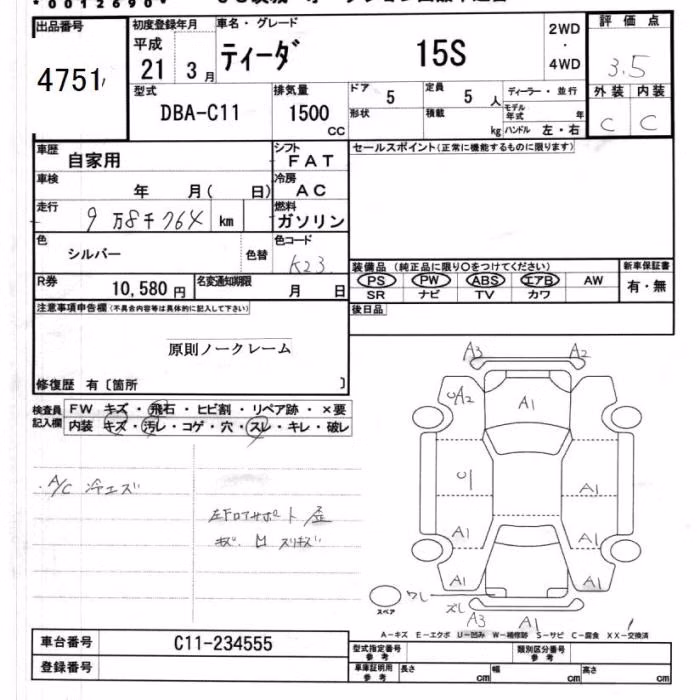 *0012690*
出品番号 初度登録年月 車名・グレード 2WD 評価点
4751 平成 21 3月 ティーダ 15S ・ 4WD 3.5
型式 排気量 ドア 5 定員 5人 ディーラー・並行 外装 内装
DBA-C11 1500 CC 形状 積載 kg モデル年式 年 ハンドル 左・右 C C
車歴 自家用 シフト FAT セールスポイント(正常に機能するものに限ります)
車検 年 月( 日) 冷房 AC
走行 9万8千764 km 燃料 ガソリン
色 シルバー 色替 色コード K23
装備品 (純正品に限り○をつけてください) 新車保証書
R券 10,580円 名変通知期限 月 日 PS PW ABS エアB AW 有・無
SR ナビ TV カワ
注意事項申告欄(不具合内容等は具体的に記入して下さい) 後日品
原則ノークレーム
修復歴 有〔箇所 〕
検査員記入欄 FW キズ・飛石・ヒビ割・リペア跡・×要
内装 キズ・汚レ・コゲ・穴・スレ・キレ・破レ
A3 A2
A2 A1
A/C 冷エズ
A1
A1 A1
A1 A1
スペア ワレ
ズレ A3 A1
A-キズ E-エクボ U-凹み W-補修跡 S-サビ C-腐食 XX-交換済
車台番号 C11-234555 型式指定番号 参考 類別区分番号 参考
登録番号 車庫証明用 参考 長さ cm 幅 cm 高さ cm